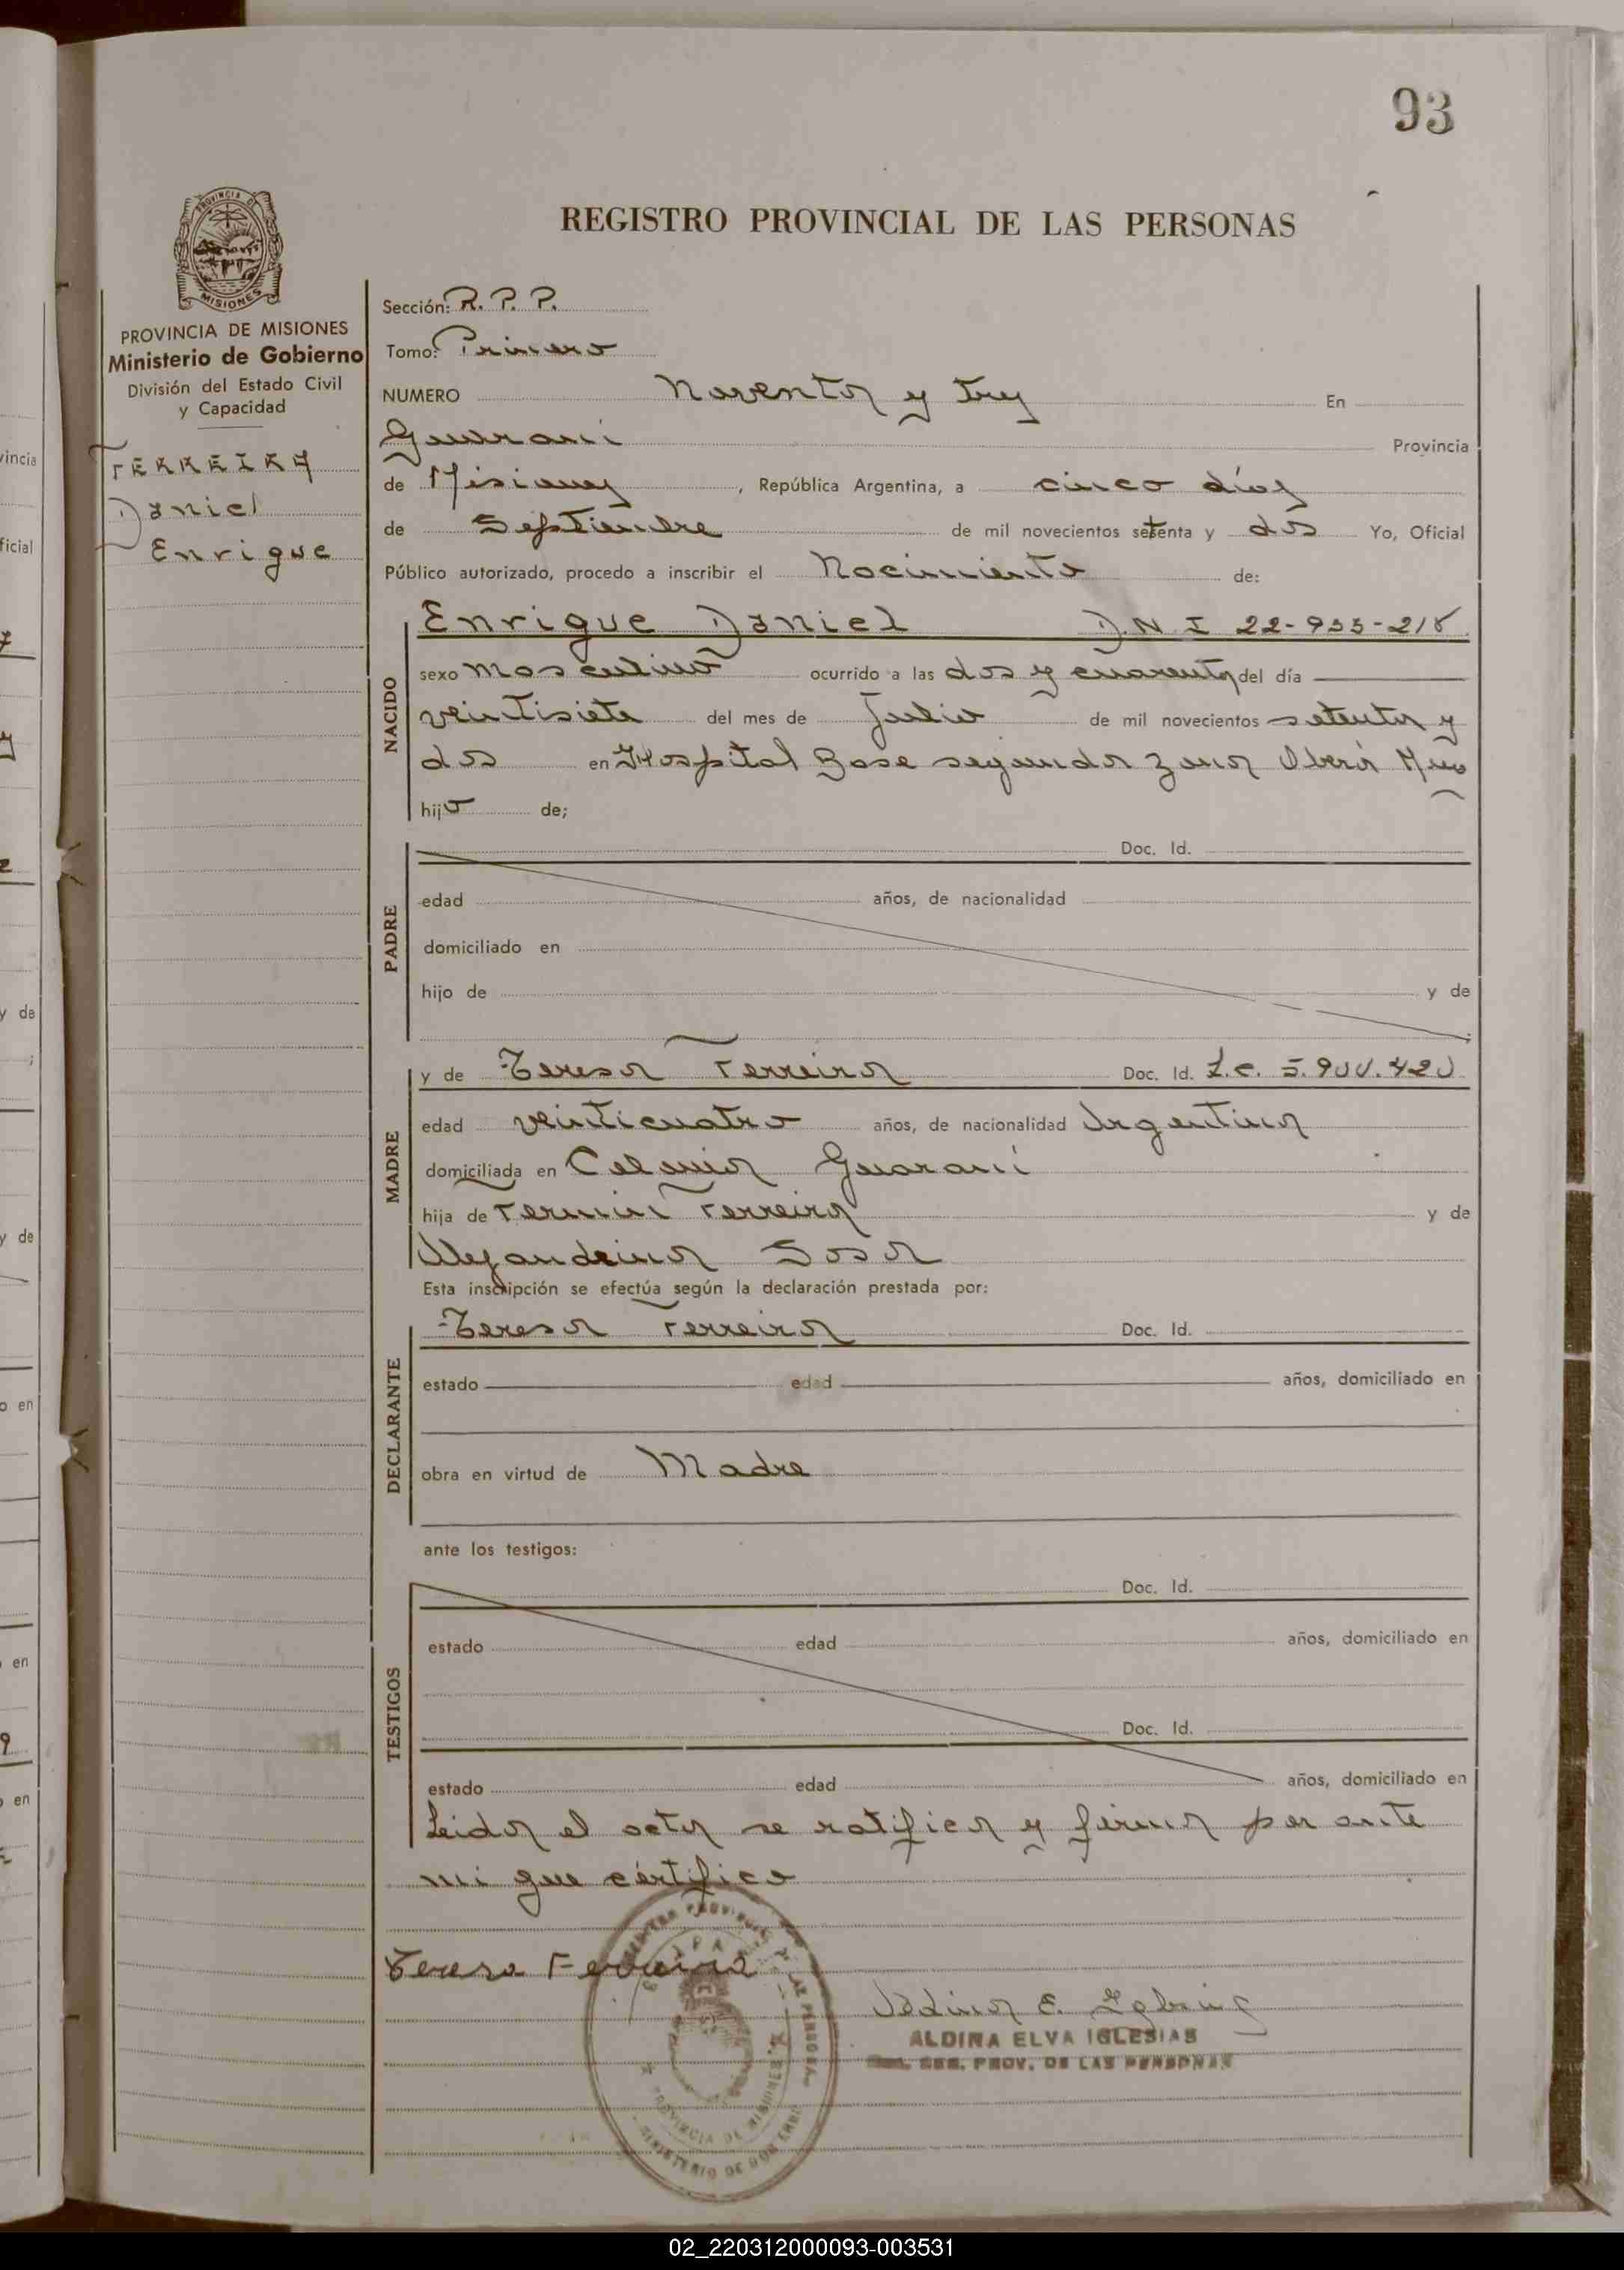 93
PROVINCIA DE
MISIONES
REGISTRO PROVINCIAL DE LAS PERSONAS
PROVINCIA DE MISIONES
Ministerio de Gobierno
División del Estado Civil
y Capacidad
FERREIRA
Daniel
Enrique
Sección: R. P. P.
Tomo: Primero
NUMERO Noventa y Tres En
Guaraní Provincia
de Misiones, República Argentina, a cinco días
de Septiembre de mil novecientos setenta y dos Yo, Oficial
Público autorizado, procedo a inscribir el Nacimiento de:
NACIDO
Enrique Daniel D.N.I
sexo Masculino ocurrido a las dos y cuarenta del día
veintisiete del mes de Julio de mil novecientos setenta y
dos en Hospital Base segunda zona Oberá
hijo de;
PADRE
Doc. Id.
edad años, de nacionalidad
domiciliado en
hijo de y de
MADRE
y de Teresa Ferreira Doc. Id. L.C.
edad veinticuatro años, de nacionalidad Argentina
domiciliada en Colonia Guaraní
hija de Fermin Ferreira y de
Alejandrina Sosa
Esta inscripción se efectúa según la declaración prestada por:
DECLARANTE
Teresa Ferreira Doc. Id.
estado edad años, domiciliado en
obra en virtud de Madre
ante los testigos:
TESTIGOS
Doc. Id.
estado edad años, domiciliado en
Doc. Id.
estado edad años, domiciliado en
Leida el acta se ratifica y firma por ante
mi que certifico
Teresa Ferreira
Aldina E. Iglesias
ALDINA ELVA IGLESIAS
REG. PROV. DE LAS PERSONAS
PROVINCIA DE MISIONES
MINISTERIO DE GOBIERNO
02_220312000093-003531